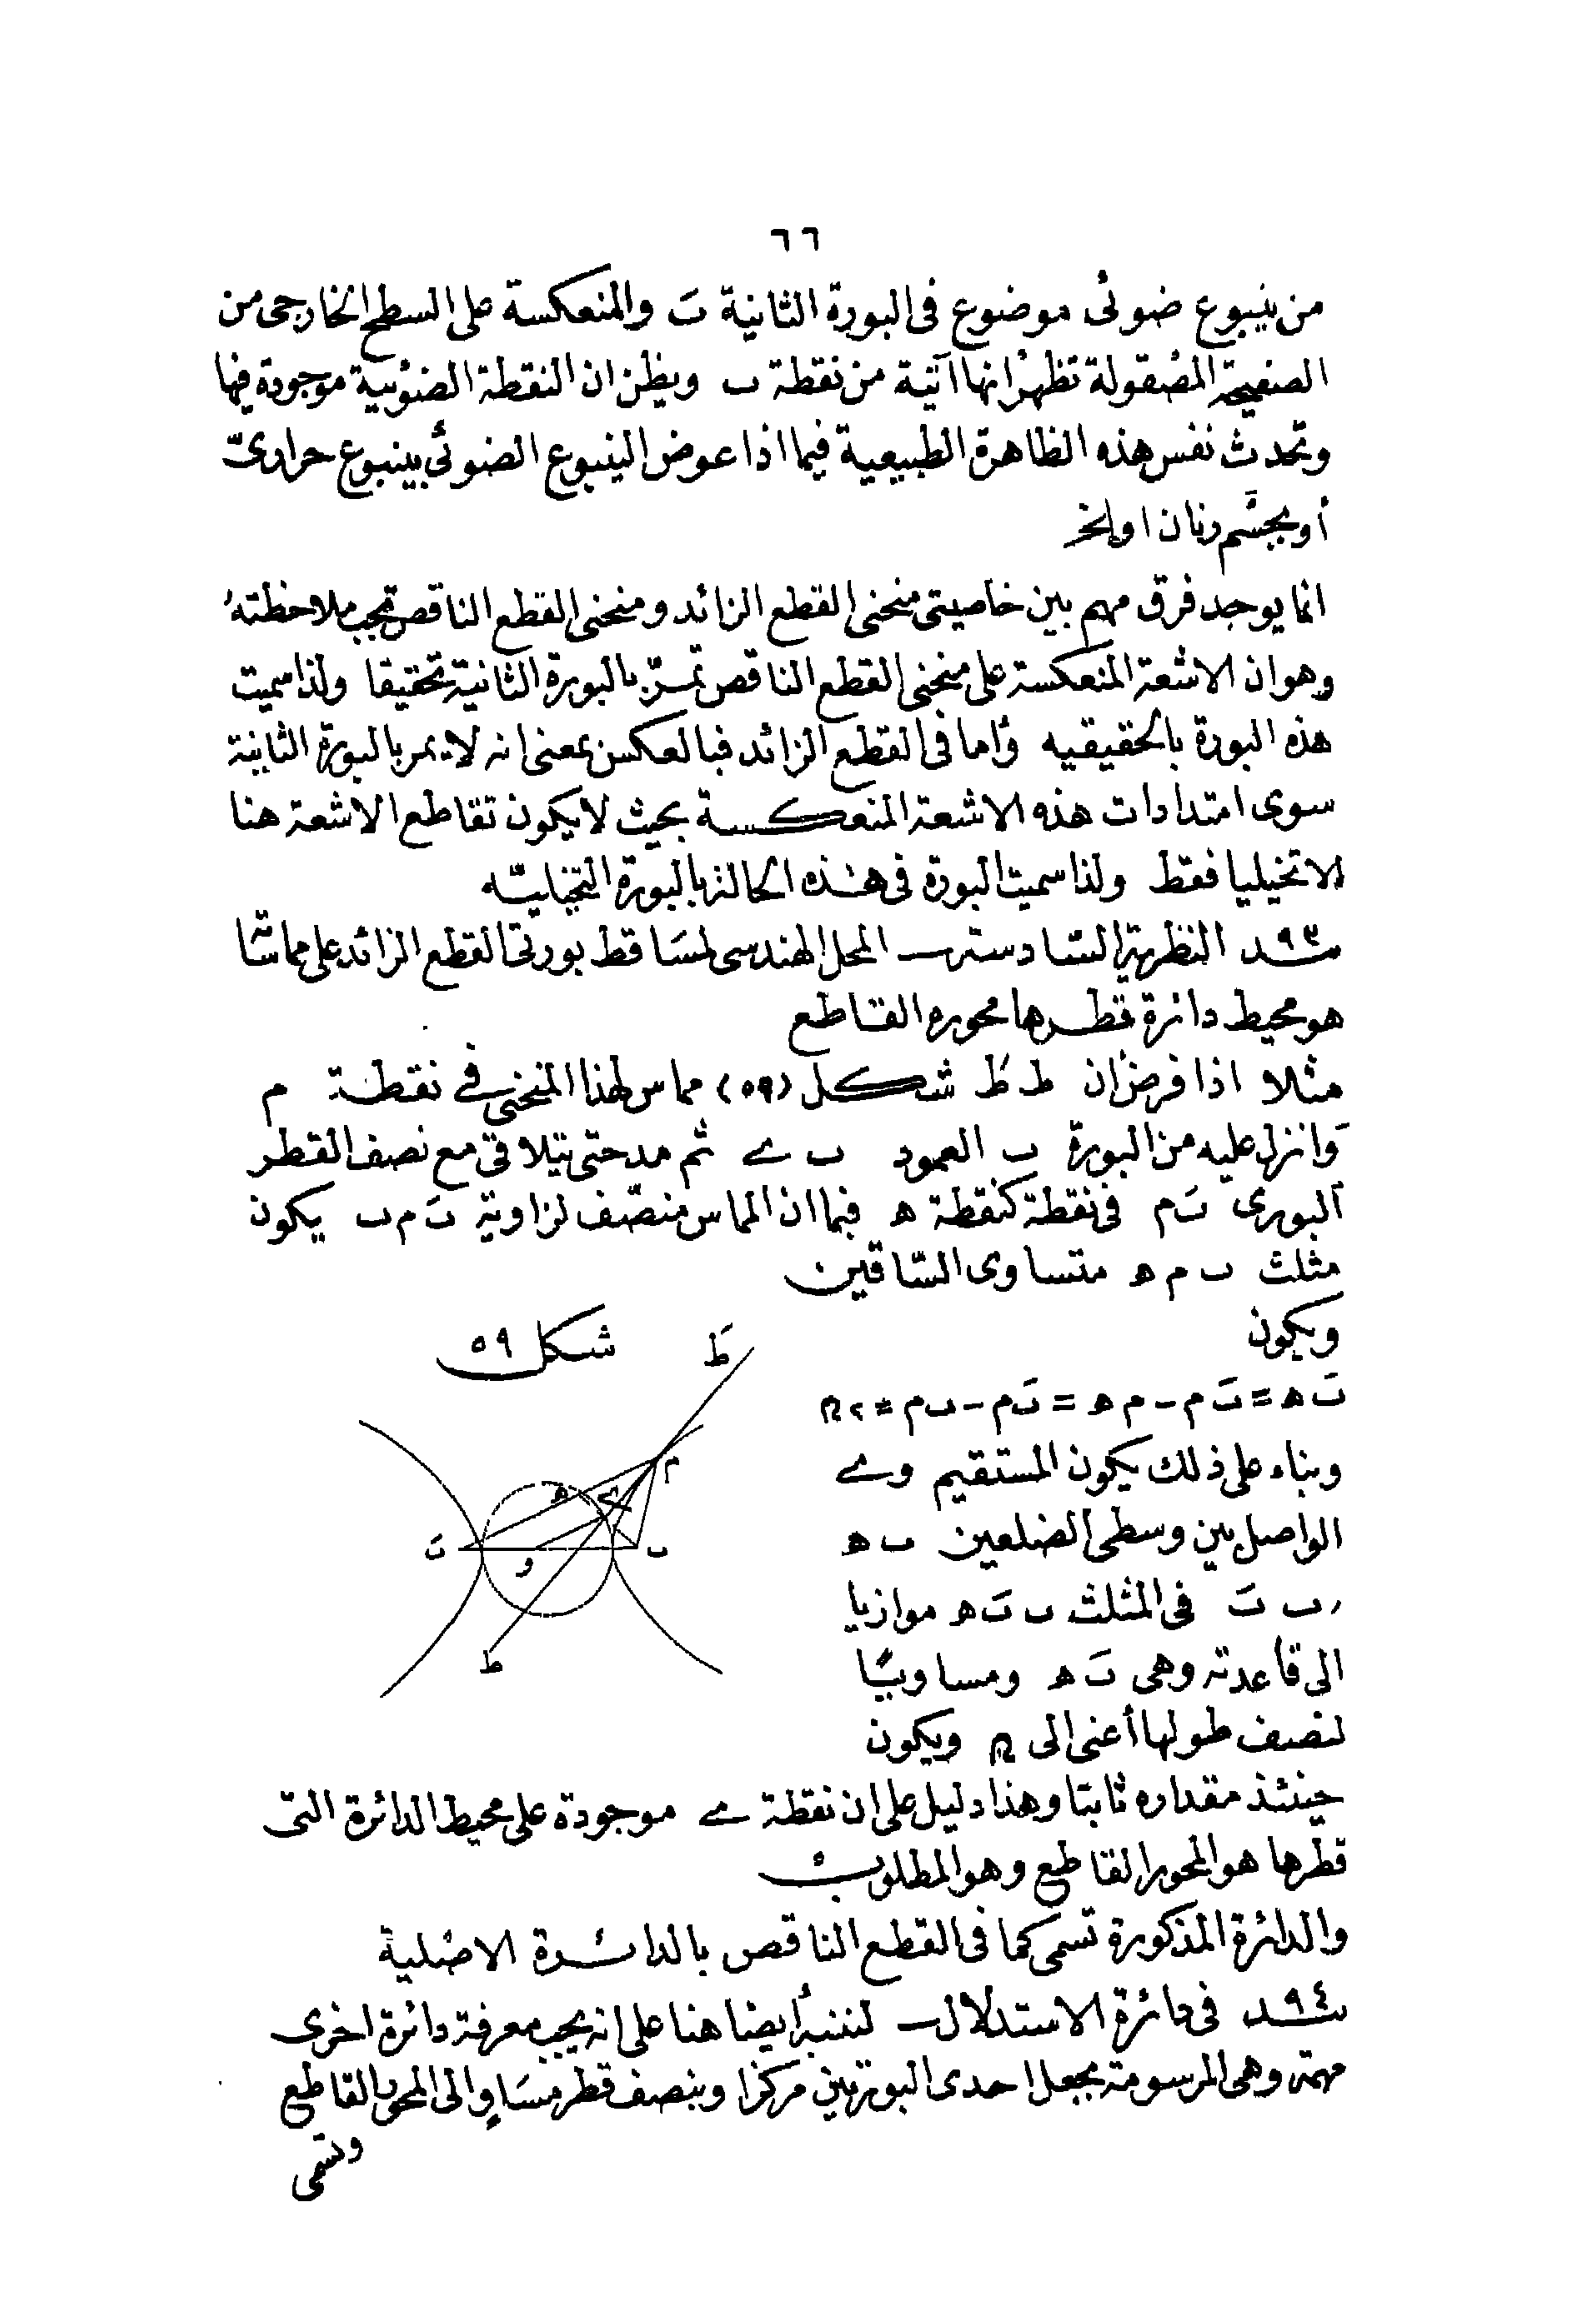 ٦٦
من ينبوع ضوئى موضوع فى البورة الثانية بَ والمنعكسة على السطح الخارجى من
الصفيحة المصقولة تظهر انها آتية من نقطة ب ويظن ان النقطة الضوئية موجودة فيها
وتحدث نفس هذه الظاهرة الطبيعية فيما اذا عوض الينبوع الضوئى بينبوع حرارىّ
أو بجسم رنان او الخ
انما يوجد فرق مهم بين خاصيتى منحنى القطع الزائد ومنحنى القطع الناقص تجب ملاحظتهُ
وهو ان الاشعة المنعكسة على منحنى القطع الناقص تمرّ بالبورة الثانية تحقيقا ولذا سميت
هذه البورة بالحقيقيه وأما فى القطع الزائد فبالعكس بمعنى انه لا يمر بالبورة الثانية
سوى امتدادات هذه الاشعة المنعكسة بحيث لا يكون تقاطع الاشعة هنا
الا تخيليا فقط ولذا سميت البورة فى هذه الحالة بالبورة التخيليه
٩٣ ند النظرية السادسة ـ المحل الهندسى لمساقط بورتى القطع الزائد على مماساته
هو محيط دائرة قطرها محوره القاطع
مثلا اذا فرض أن ط طَ شكل (٥٩) مماس لهذا المنحنى فى نقطة م
وانزل عليه من البورة ب العمود ب ى ثم مد حتى يتلاقى مع نصف القطر
البورى بَ م فى نقطة كنقطة ه فبما ان المماس منصّف لزاوية بَ م ب يكون
مثلث ب م ه متساوى السّاقين
ويكون
شكل ٥٩
بَ ه = بَ م - م ه = بَ م - ب م = ٢ م
وبناء على ذلك يكون المستقيم و ى
الواصل بين وسطى الضلعين ب ه
ر ب بَ فى المثلث ب بَ ه موازيا
الى قاعدته وهى بَ ه ومساويًا
لنصف طولها أعنى الى ويكون
حينئذ مقداره ثابتا وهذا دليل على ان نقطة ى موجودة على محيط الدائرة التى
قطرها هو المحور القاطع وهو المطلوب
والدائرة المذكورة تسمى كما فى القطع الناقص بالدائرة الاصلية
٩٤ ند فى دائرة الاستدلال ـ لننبه أيضا هنا على انه يجب معرفة دائرة اخرى
مهمة وهى المرسومة بجعل احدى البورتين مركزا وبنصف قطر مساوٍ الى المحور القاطع
وتسمى
طَ
م
ه
ى
بَ
و
ب
ط